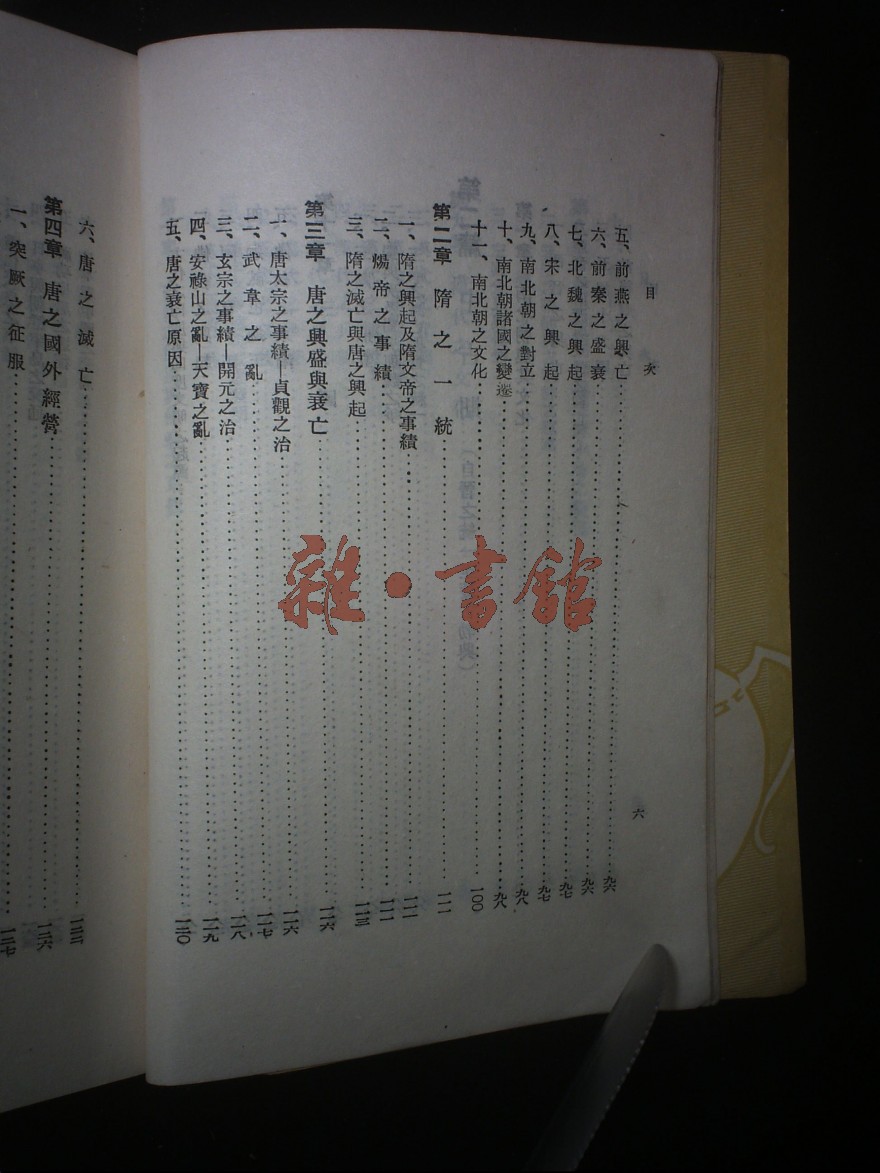 目次
六
五、前燕之興亡……九六
六、前秦之盛衰……九六
七、北魏之興起……九七
八、宋之興起……九七
九、南北朝之對立……九八
十、南北朝諸國之變遷……九八
十一、南北朝之文化……一〇〇
第二章 隋之一統……一一一
一、隋之興起及隋文帝之事績……一一一
二、煬帝之事績……一一二
三、隋之滅亡與唐之興起……一一三
第三章 唐之興盛與衰亡……一一六
一、唐太宗之事績—貞觀之治……一一六
二、武韋之亂……一一七
三、玄宗之事績—開元之治……一一八
四、安祿山之亂—天寶之亂……一一九
五、唐之衰亡原因……一二〇
六、唐之滅亡……一二三
第四章 唐之國外經營……一二六
一、突厥之征服……一二七
雜·書館